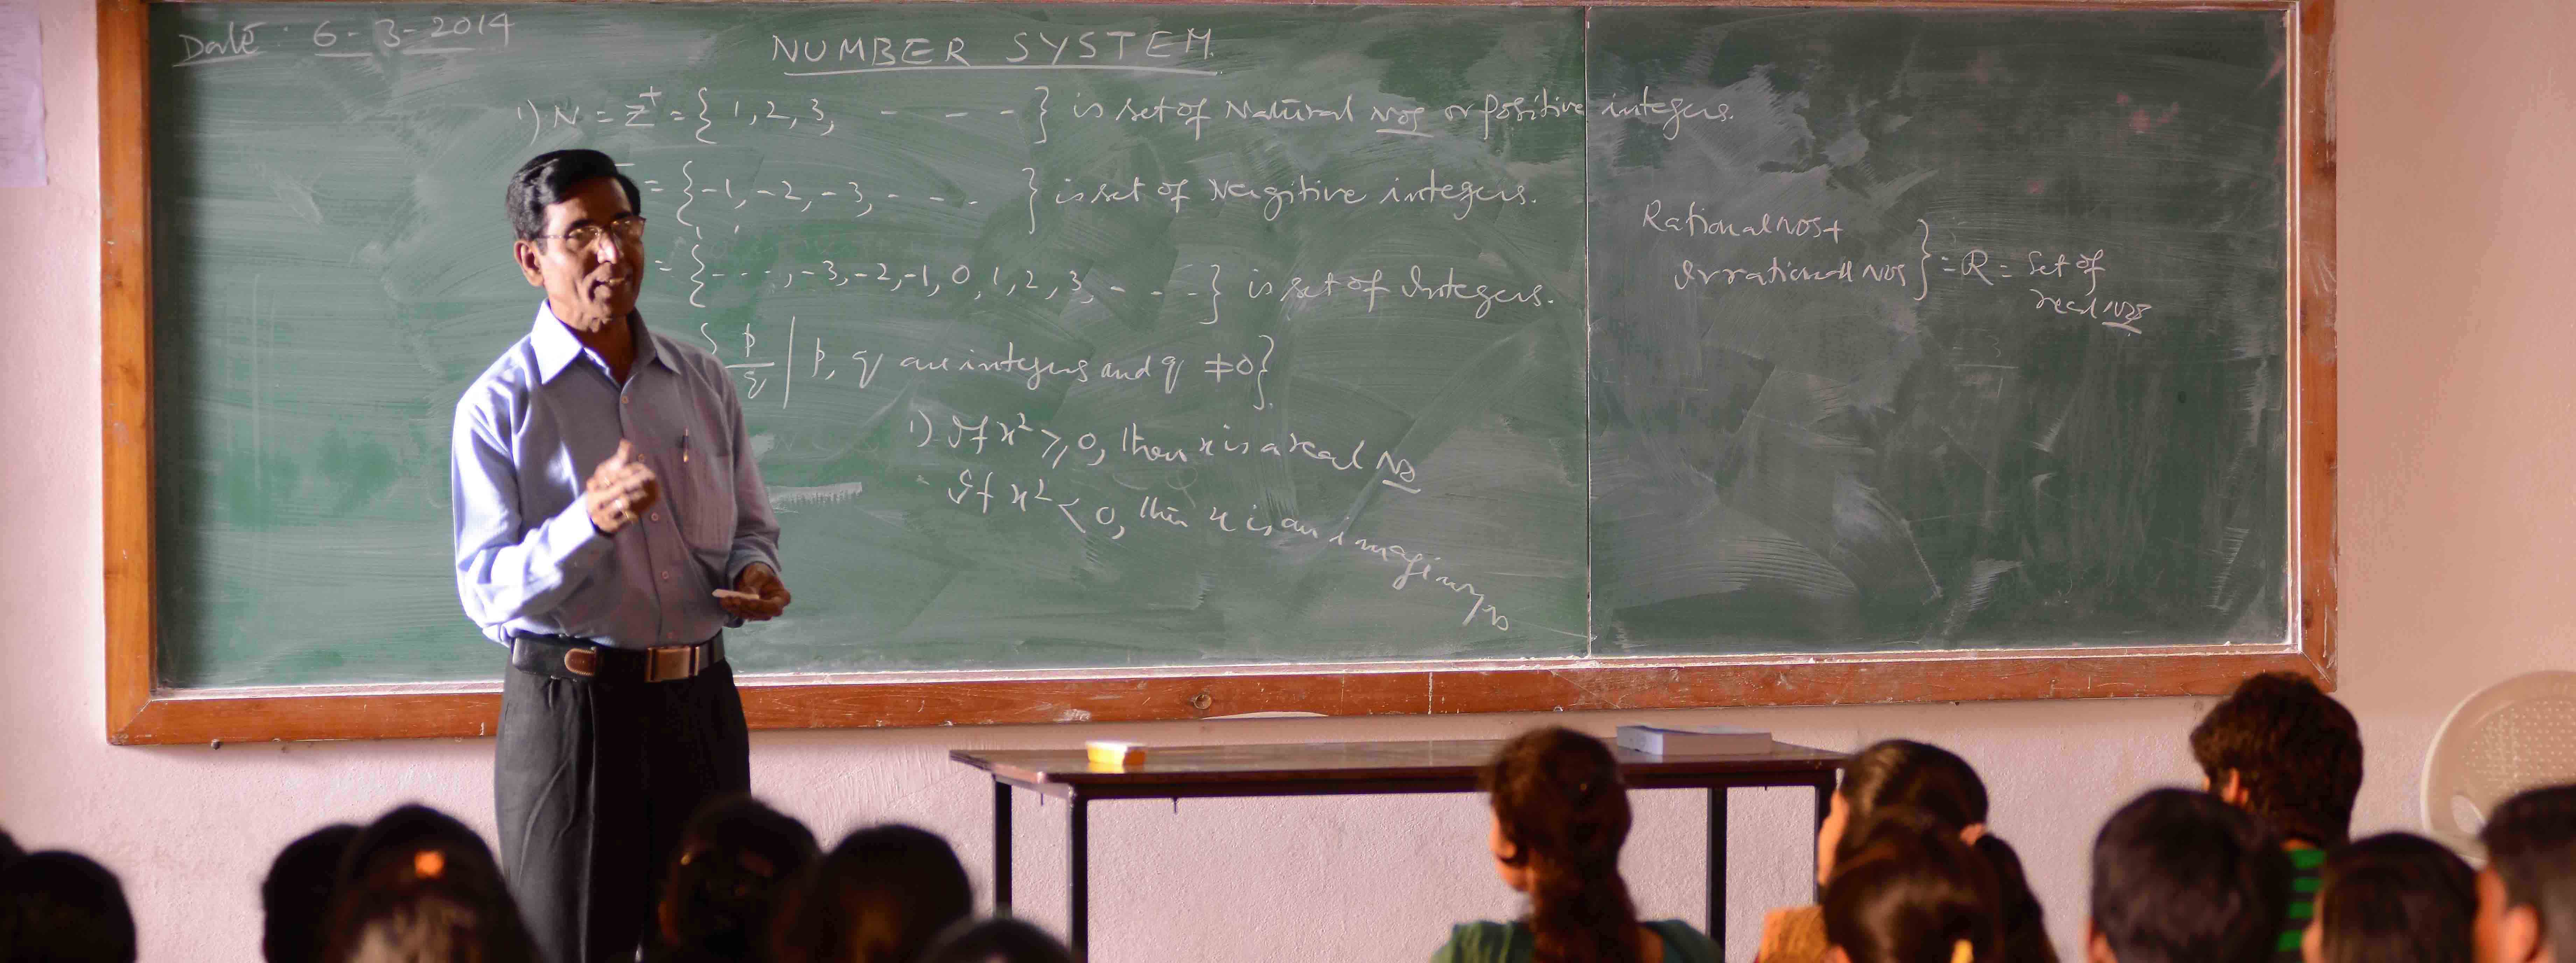 Date : 6-3-2014
NUMBER SYSTEM
1) N = Z⁺ = { 1, 2, 3, - - - } is set of Natural Nos or positive integers.
= { -1, -2, -3, - - - } is set of Nergitive integers.
= { - - - , -3, -2, -1, 0, 1, 2, 3, - - - } is set of Integers.
{ p/q | p, q are integers and q ≠ 0 }
1) If x² ≥ 0, then x is a real No
If x² < 0, then x is an imaginary no
Rational Nos +
Irrational Nos } = R = Set of
real Nos